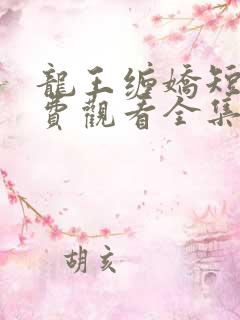 龍王缠嬌短
費觀看全集
胡亥